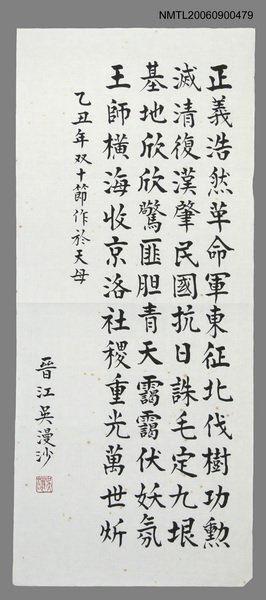 NMTL20060900479
正義浩然革命軍東征北伐樹功勲
滅清復漢肇民國抗日誅毛定九垠
基地欣欣驚匪胆青天靄靄伏妖氛
王師橫海收京洛社稷重光萬世炘
乙丑年双十節作於天母
晉江吳漫沙